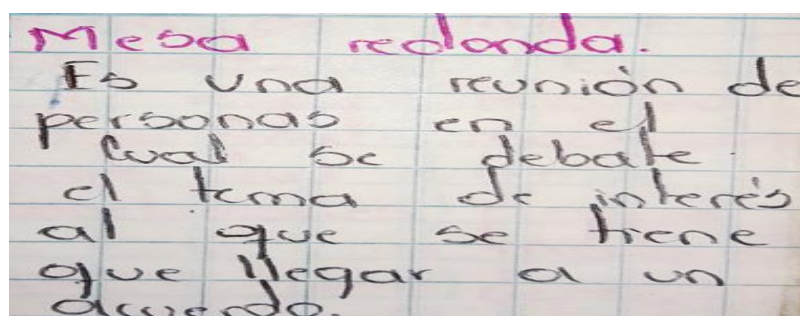 Mesa redonda.
Es una reunión de
personas en el
cual se debate
el tema de interés
al que se tiene
que llegar a un
acuerdo.